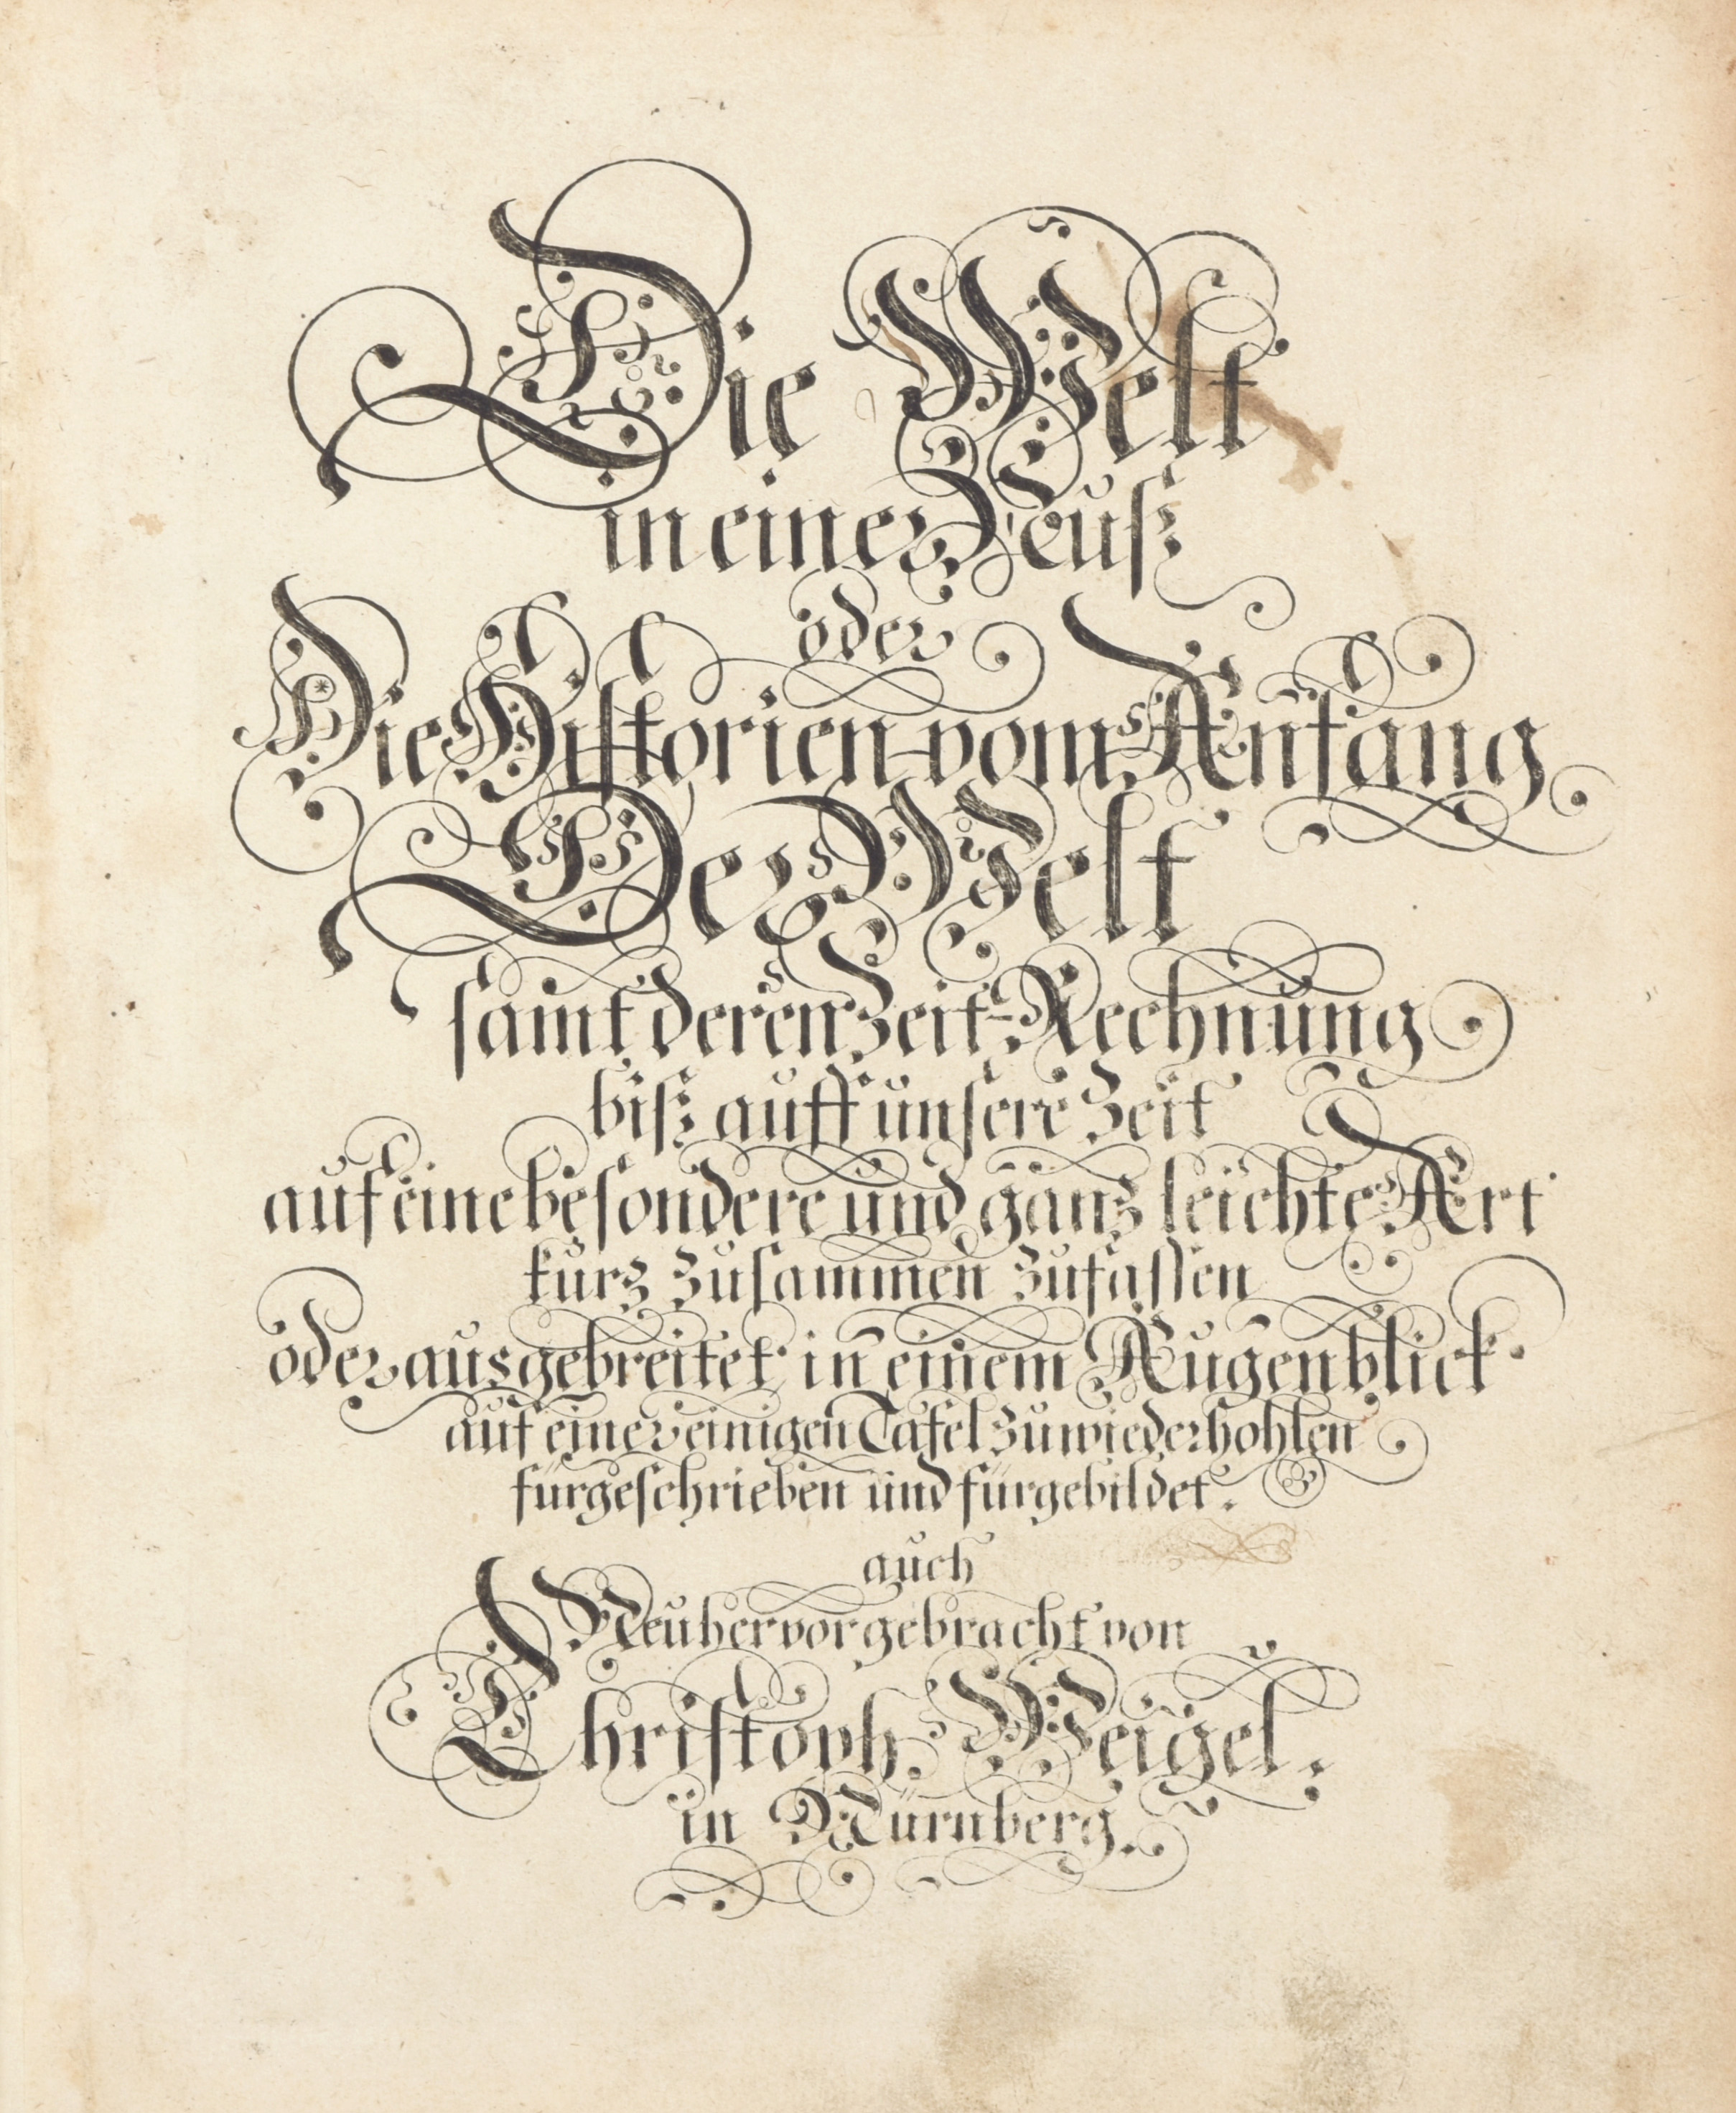 Die Welt
in einer Neuß
oder
Die Historien vom Anfang
Der Welt
samt deren Zeit-Rechnung
biß auff unsere Zeit
auf eine besondere und ganz leichte Art
kurz zusammen zufassen
oder ausgebreitet in einem Augenblick.
auf einer einigen Tafel zuwiederhohlen
fürgeschrieben und fürgebildet.
auch
Neu hervorgebracht von
Christoph Weigel.
in Nürnberg.